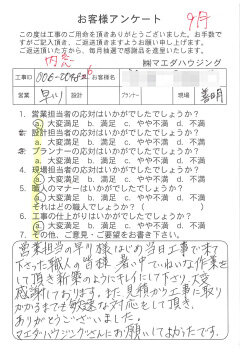 お客様アンケート
9月
この度は工事のご用命を頂きありがとうございました。お手数で
すがご記入頂き、ご返送頂きますようお願い申し上げます。
ご返送頂いた方から、毎月抽選で感謝品を進呈いたします。
内窓
㈱マエダハウジング
工事ID
お客様名
営業
早川
設計
プランナー
現場
1. 営業担当者の応対はいかがでしたでしょうか?
a. 大変満足 b. 満足 c. やや不満 d. 不満
2. 設計担当者の応対はいかがでしたでしょうか?
a. 大変満足 b. 満足 c. やや不満 d. 不満
3. プランナーの応対はいかがでしたでしょうか?
a. 大変満足 b. 満足 c. やや不満 d. 不満
4. 現場担当者の応対はいかがでしたでしょうか?
a. 大変満足 b. 満足 c. やや不満 d. 不満
5. 職人のマナーはいかがでしたでしょうか?
a. 大変満足 b. 満足 c. やや不満 d. 不満
それはどの職人でしょうか?(
6. 工事の仕上がりはいかがでしたでしょうか?
a. 大変満足 b. 満足 c. やや不満 d. 不満
7. その他、ご意見・ご要望をお書き下さい。
営業担当の早川様はじめ当日工事で来て
下さった職人の皆様、暑い中ていねいな作業を
して頂き新築のようにキレイにして下さり、大変
感謝しております。また、見積から工事に取り
かかるまでも敏速な対応をして頂き、
ありがとうございました。
マエダハウジングさんにお願いしてよかったです。